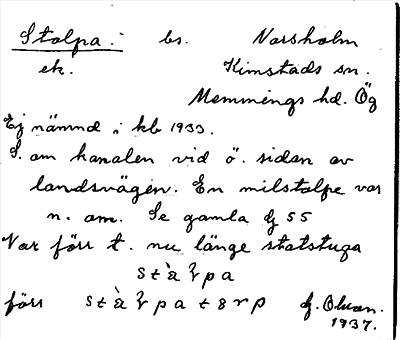 Stolpa. bs. Norsholm
ek. Kimstads sn.
Memmings hd. Ög
Ej nämnd i kb 1933.
S. om kanalen vid ö. sidan av
landsvägen. En milstolpe var
n. om. Se gamla 55
Var förr t. nu länge statstuga
förr
1937.